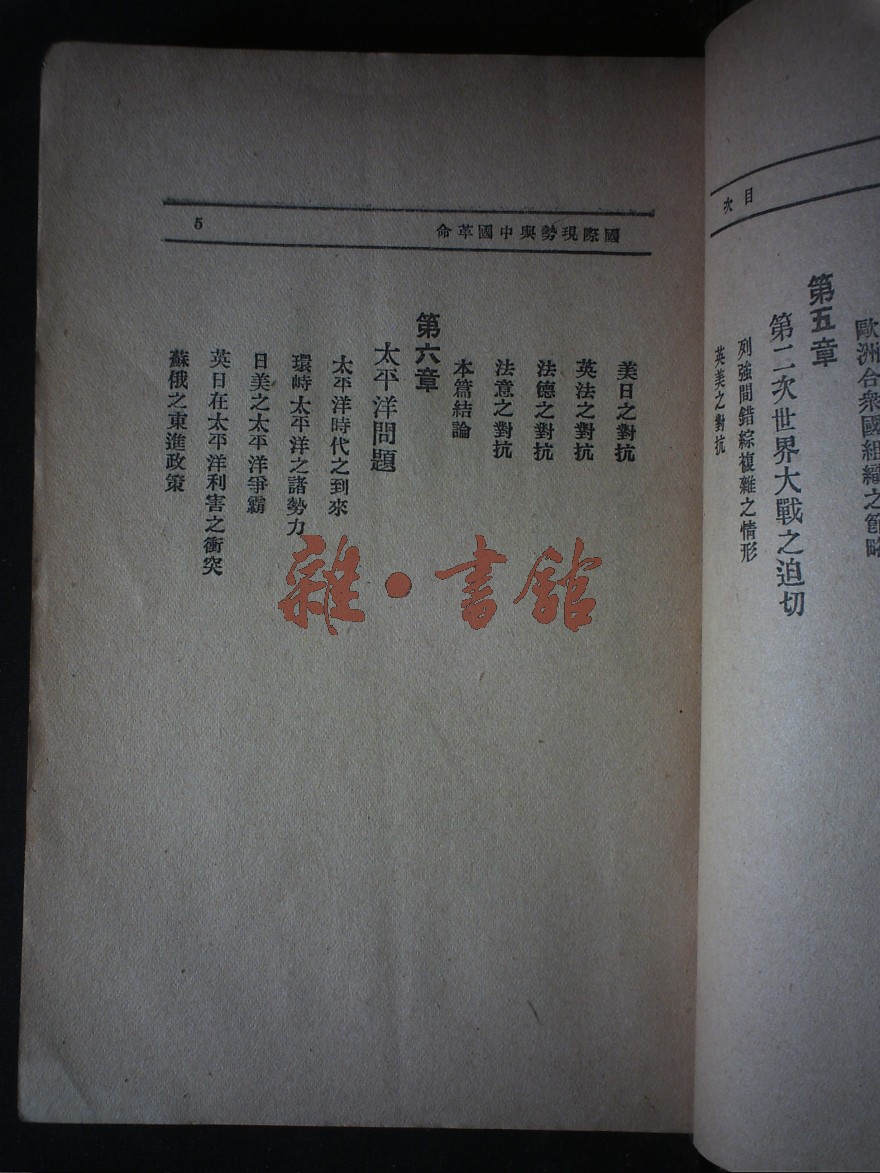 目次
歐洲合衆國組織之節略
第五章
第二次世界大戰之迫切
列強間錯綜複雜之情形
英美之對抗
國際現勢與中國革命
5
美日之對抗
英法之對抗
法德之對抗
法意之對抗
本篇結論
第六章
太平洋問題
太平洋時代之到來
環峙太平洋之諸勢力
日美之太平洋爭霸
英日在太平洋利害之衝突
蘇俄之東進政策
雜·書館